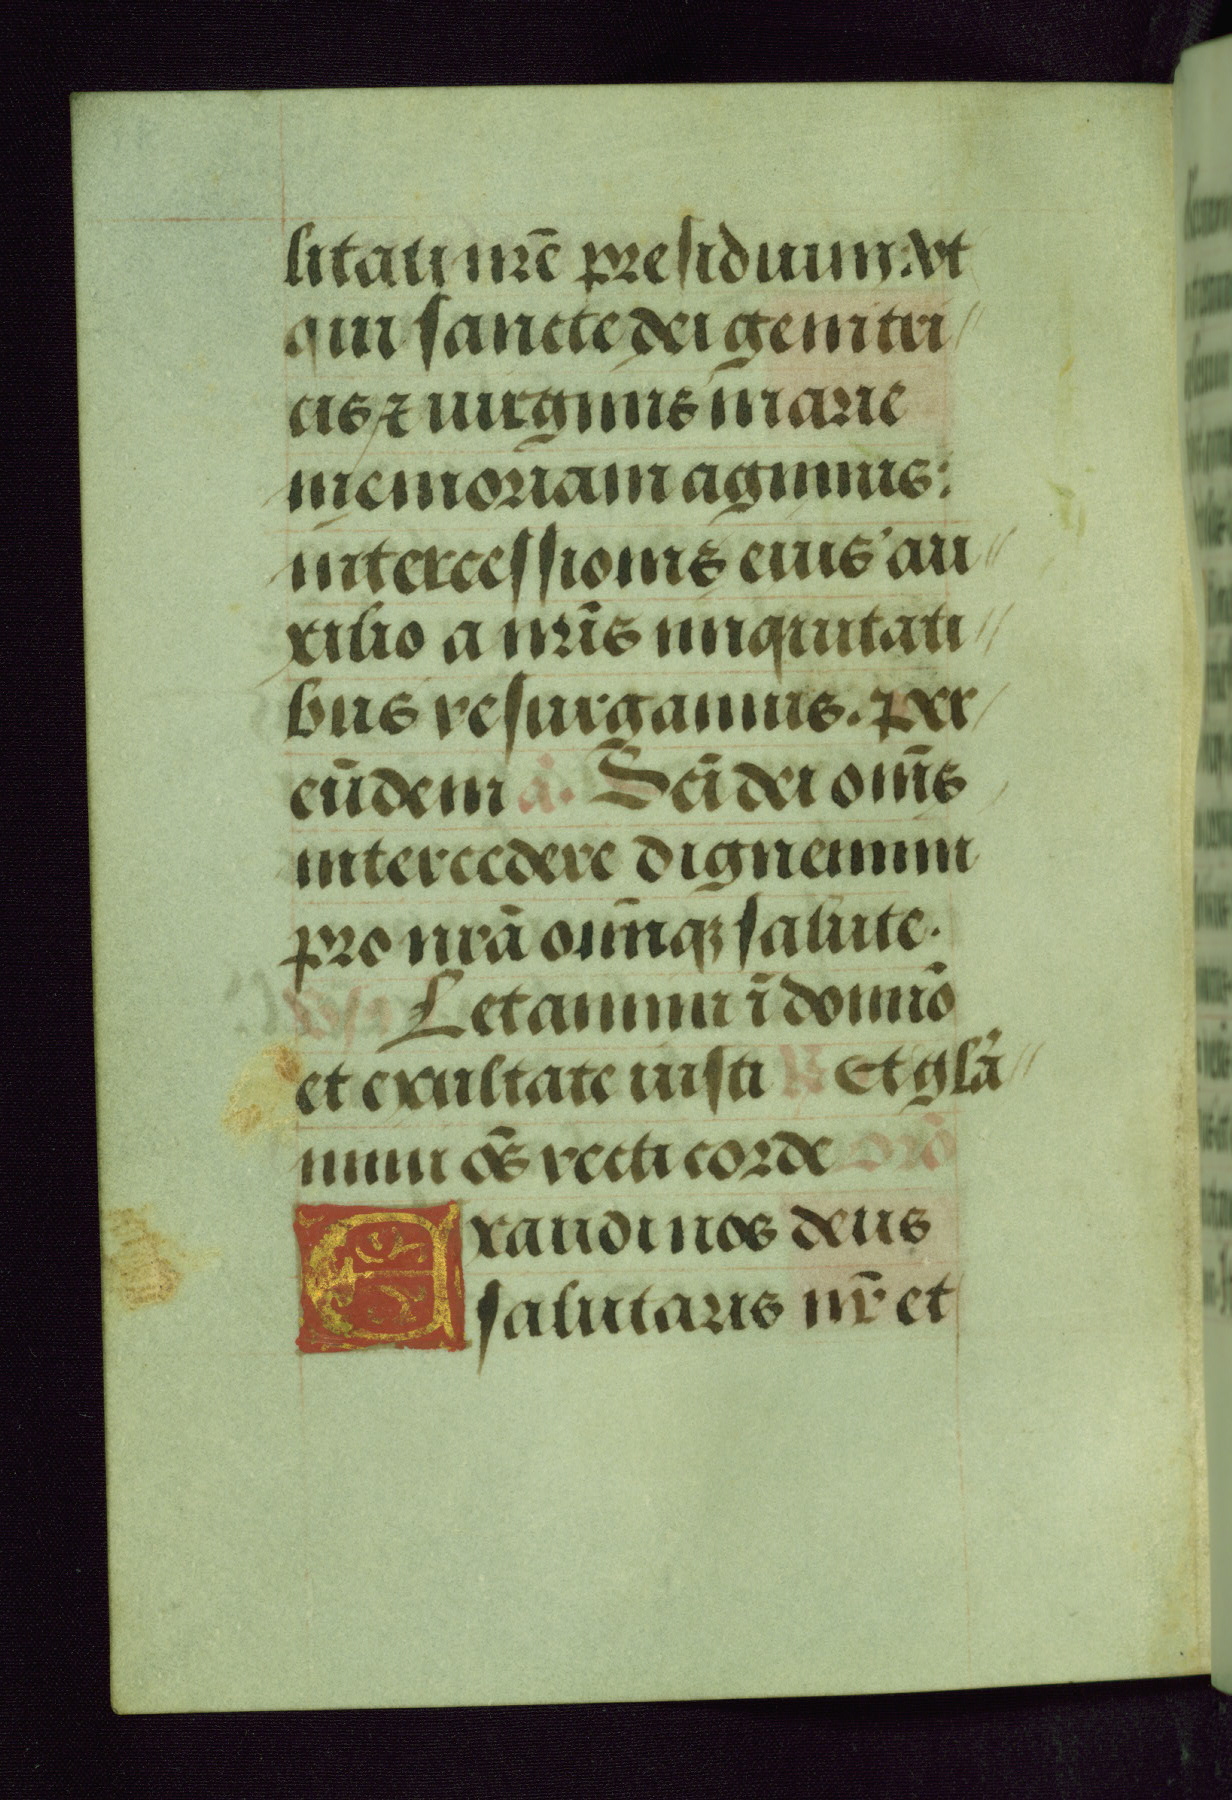 litati nr̄e presidium: Vt
qui sancte dei genitri
cis ⁊ uirginis marie
memoriam agimus:
intercessionis eius au
xilio a nr̄is iniquitati
bus resurgamus. Per
eūdem ā. Sc̄i dei om̄s
intercedere dignemini
pro nr̄ā omniūqȝ salute.
Letamini ī domīo
et exultate iusti R Et gl̄a
mini oēs recti corde orō
Exaudi nos deus
salutaris nr̄ et